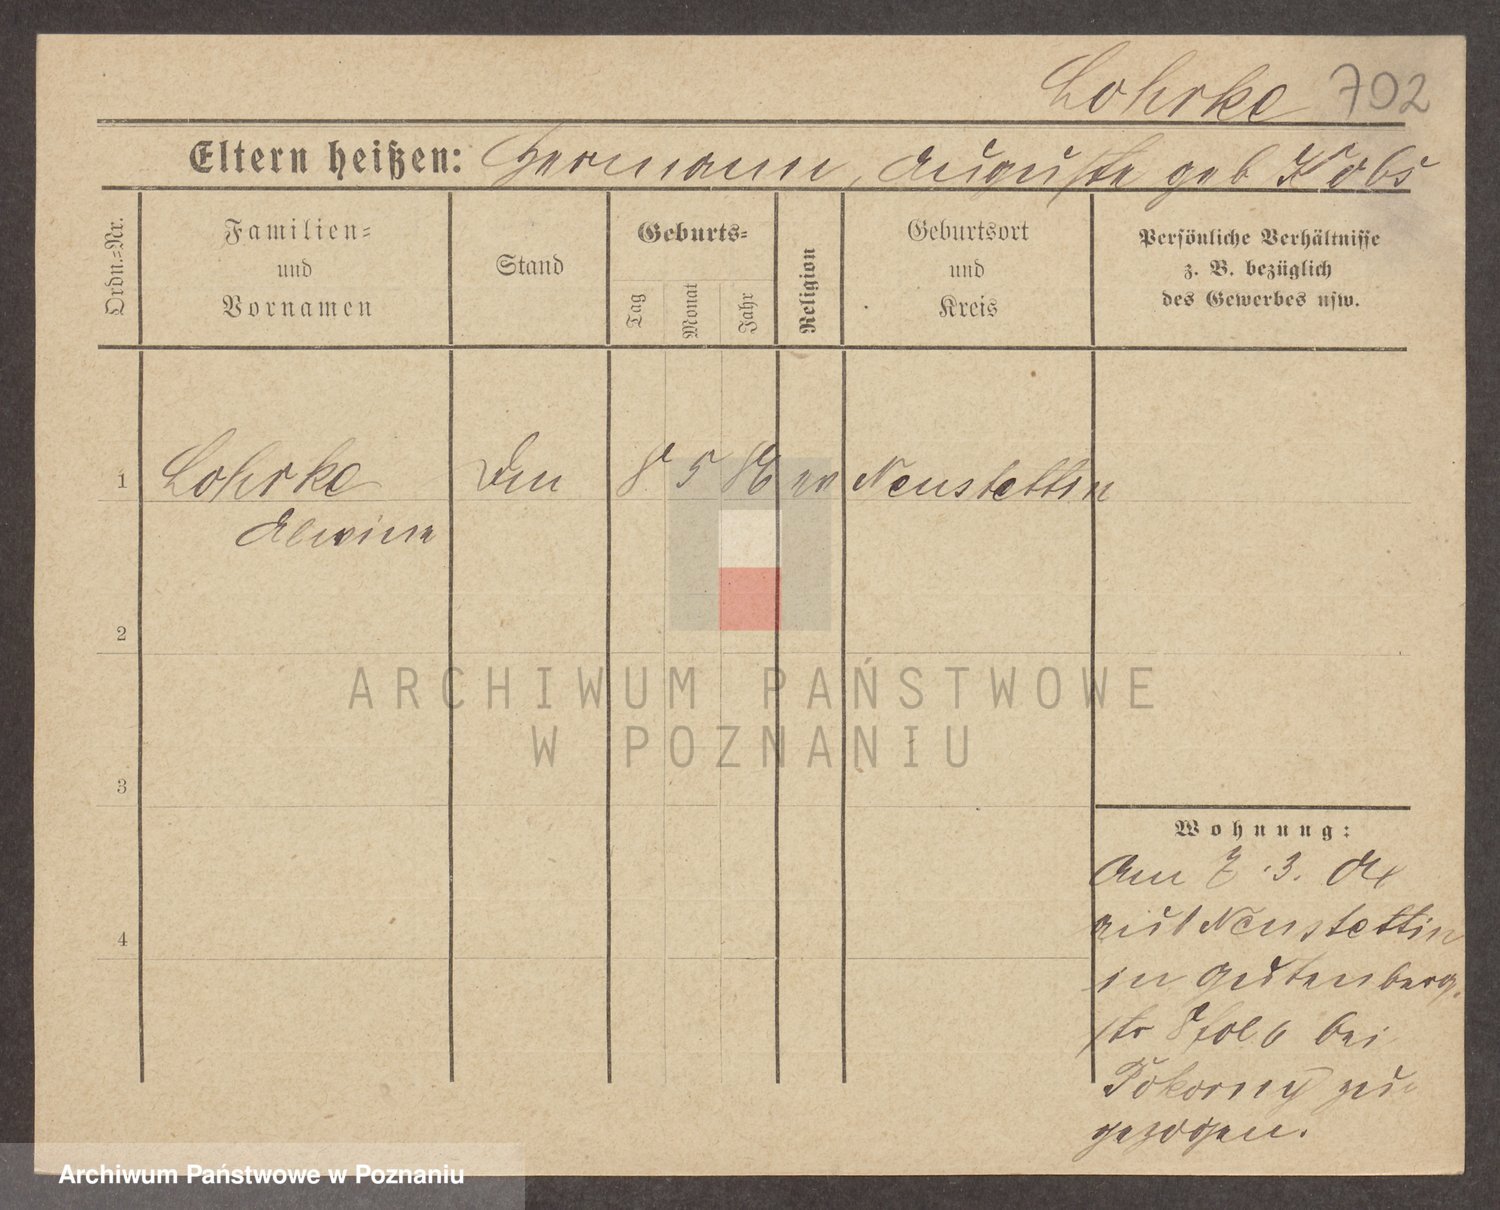 Lohrke 702
Eltern heißen: Hermann, Auguste geb Köbs
Ordn.=Nr.
Familien=
und
Vornamen
Stand
Geburts=
Tag
Monat
Jahr
Religion
Geburtsort
und
Kreis
Persönliche Verhältnisse
z. B. bezüglich
des Gewerbes usw.
1 Lohrke 8 5 86 ev Neustettin
Alwine
2
3
4
Wohnung:
Am 7.3.
aus Neustettin
in Gutenberg
str 8 bei
Pokorny zu=
gezogen.
ARCHIWUM PAŃSTWOWE
W POZNANIU
Archiwum Państwowe w Poznaniu